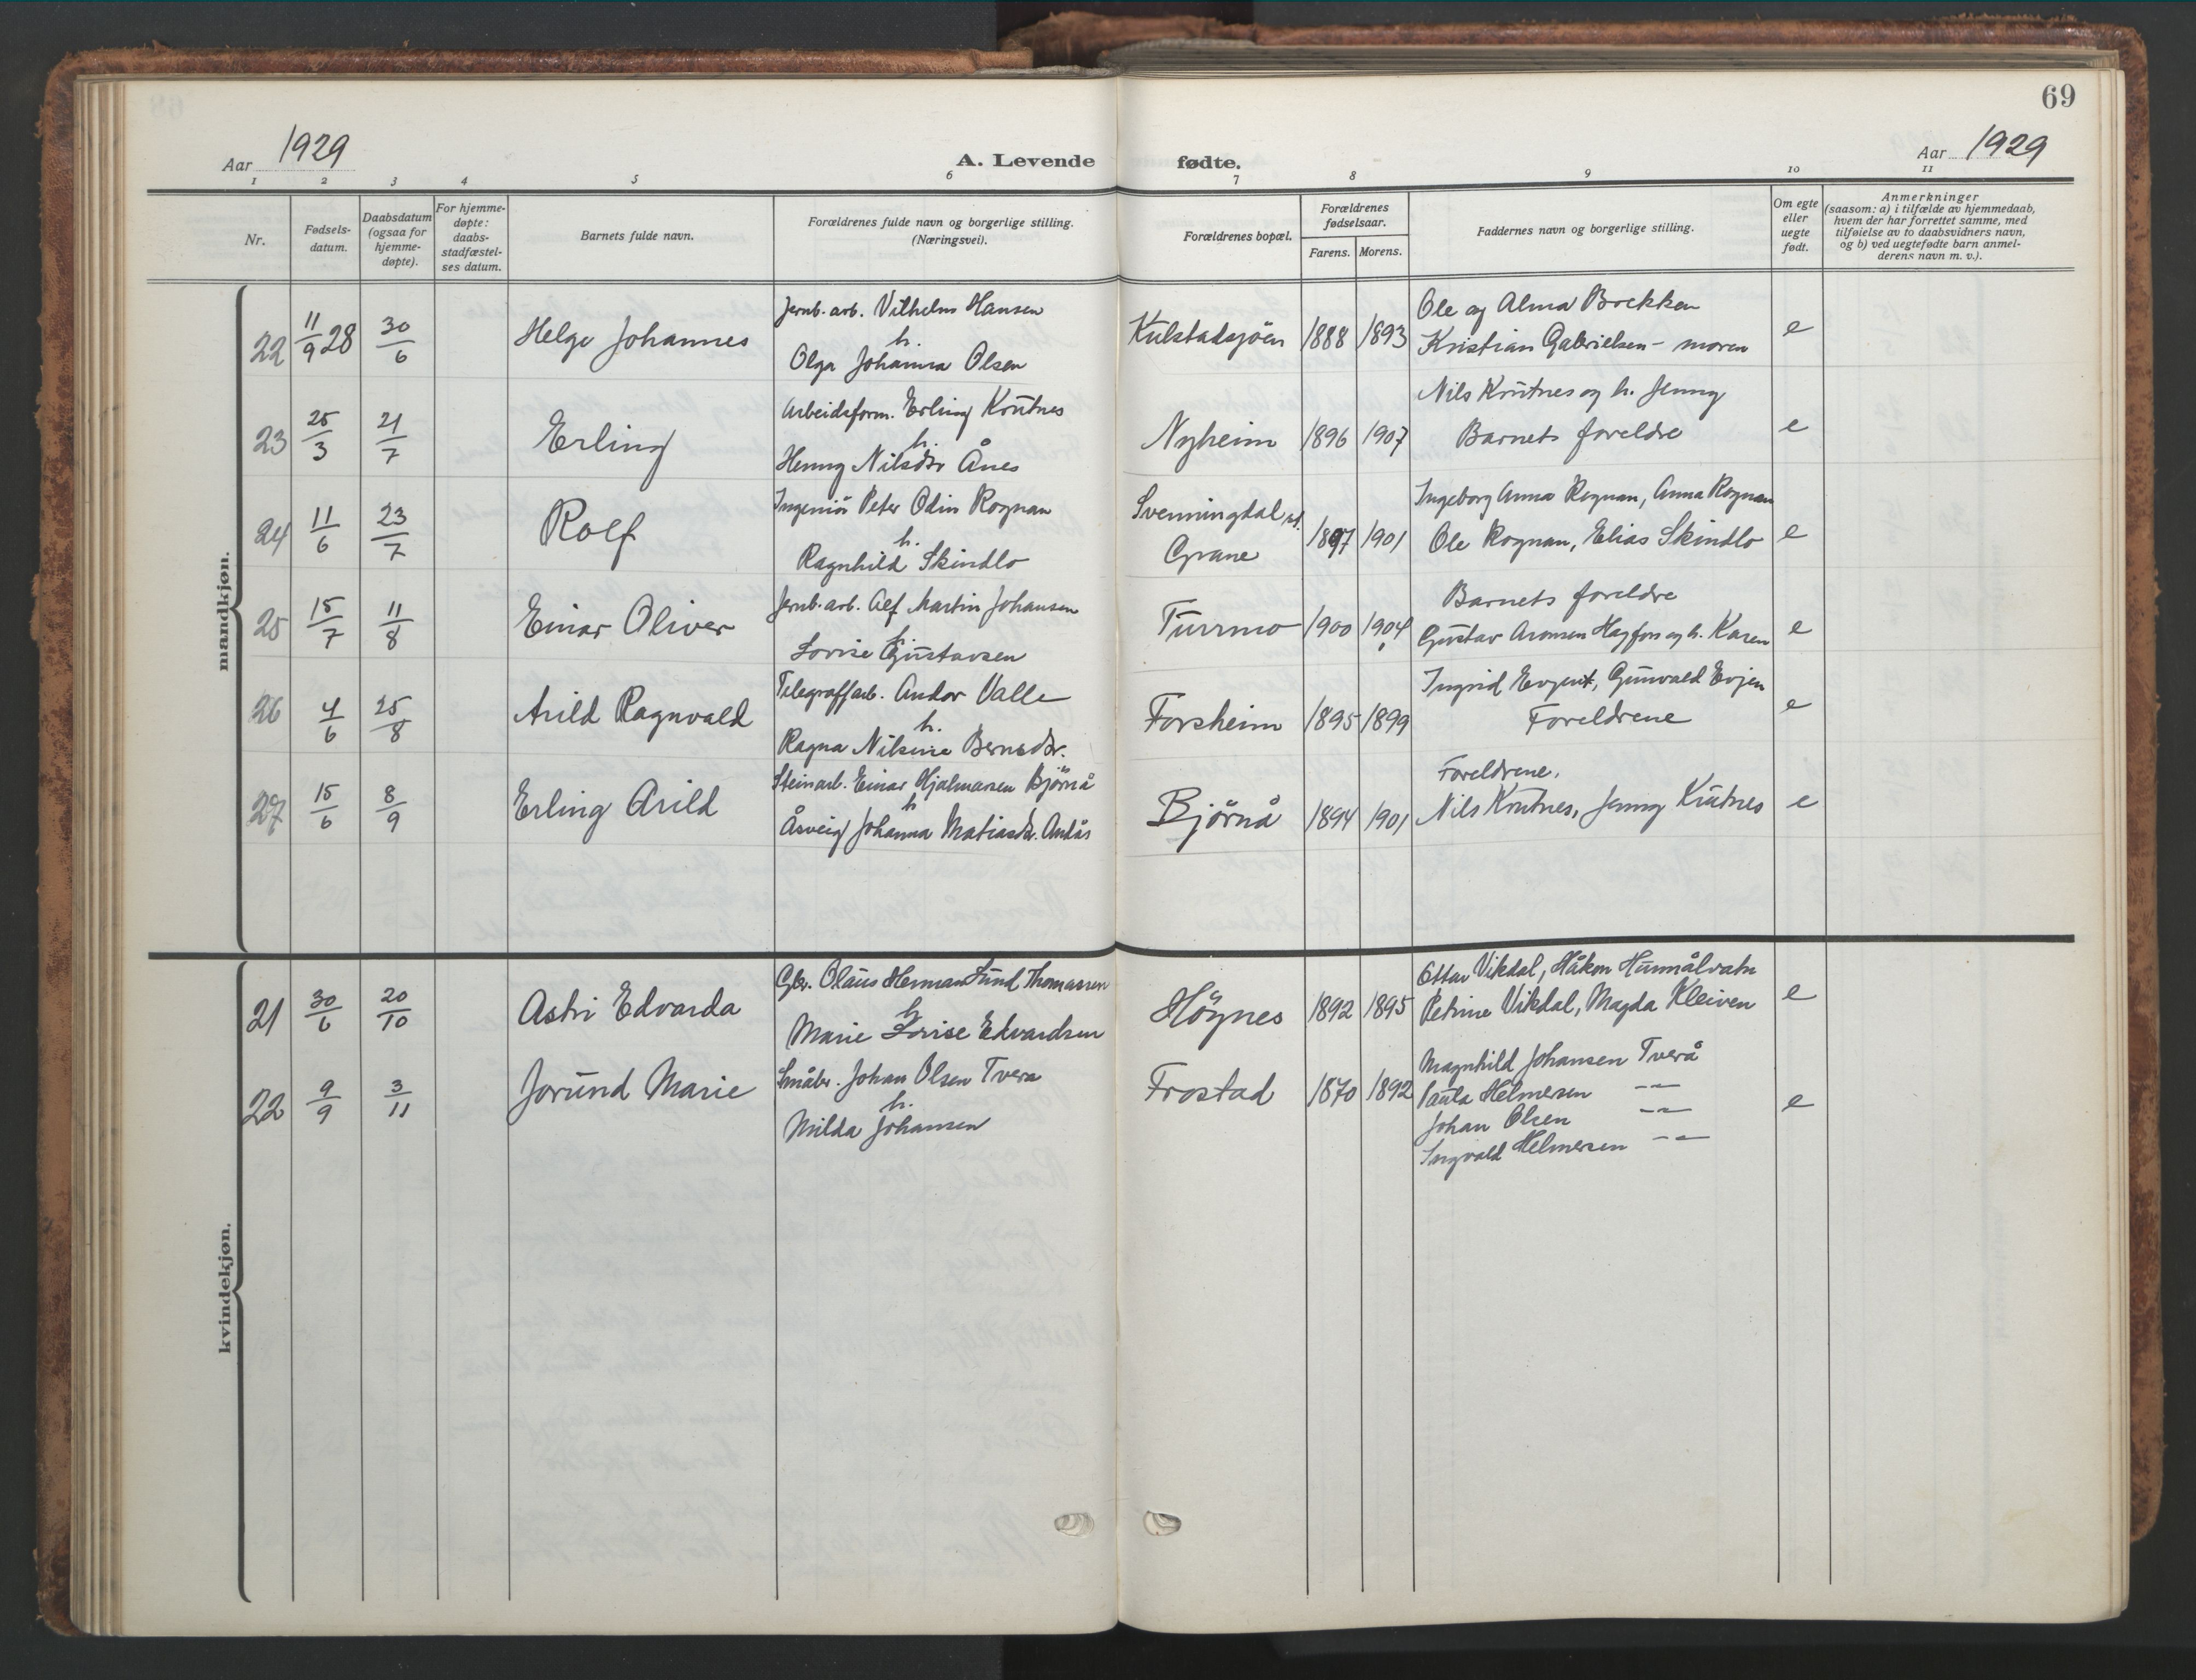 69
Aar 1929
A. Levende fødte.
Aar 1929
1 2 3 4 5 6 7 8 9 10 11
Nr.
Fødsels-
datum.
Daabsdatum
(ogsaa for
hjemme-
døpte).
For hjemme-
døpte:
daabs-
stadfæstel-
ses datum.
Barnets fulde navn.
Forældrenes fulde navn og borgerlige stilling.
(Næringsvei).
Forældrenes bopæl.
Forældrenes
fødselsaar.
Farens. Morens.
Faddernes navn og borgerlige stilling.
Om egte
eller
uegte
født.
Anmerkninger
(saasom: a) i tilfælde av hjemmedaab,
hvem der har forrettet samme, med
tilføielse av to daabsvidners navn,
og b) ved uegtefødte barn anmel-
derens navn m. v.).
mandkjøn.
22 11/9 28 30/6 Helge Johannes
Jernb. arb. Vilhelm Hansen
h.
Olga Johanna Olsen
Kulstadsjöen 1888 1893
Ole og Alma Brekken
Kristian Gabrielsen - moren
e
23 25/3 21/7 Erling
Arbeidsform. Erling Krutnes
h.
Henny Nilsdtr Ånes
Nyheim 1896 1907
Nils Krutnes og h. Jenny
Barnets foreldre
e
24 11/6 23/7 Rolf
Ingeniör Peter Odin Rognan
h.
Ragnhild Skindlo
Svenningdal st.
Grane
1897 1901
Ingeborg Anna Rognan, Anna Rognan
Ole Rognan, Elias Skindlo
e
25 15/7 11/8 Einar Oliver
Jernb. arb. Alf Martin Johansen
h.
Lovise Gustavsen
Turrmo 1900 1904
Barnets foreldre
Gustav Aronsen Hagfors og h. Karen
e
26 4/6 25/8 Arild Ragnvald
Telegrafarb. Andor Valle
h.
Ragna Nilsine Berntsdtr.
Forsheim 1895 1899
Ingrid Evjent, Gunvald Evjen
Foreldrene
e
27 15/6 8/9 Erling Arild
Steinarb. Einar Hjalmarsen Björnå
h
Åsveig Johanna Matiasdtr. Andås
Björnå 1894 1901
Foreldrene.
Nils Krutnes, Jenny Krutnes
e
kvindekjøn.
21 30/6 20/10 Astri Edvarda
Gbr. Olaus Herman Lund Thomassen
h
Marie Lovise Edvardsen
Höynes 1892 1895
Ottar Vikdal, Håkon Hunnålvatn
Petrine Vikdal, Magda Kleiven
e
22 9/9 3/11 Jorund Marie
Småbr. Johan Olsen Tvera
h.
Milda Johansen
Frostad 1870 1892
Magnhild Johansen Tverå
Paula Helmersen -"-
Johan Olsen -"-
Ingvald Helmersen -"-
e